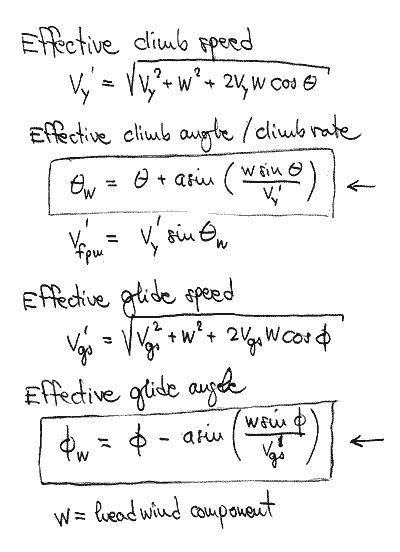 Effective climb speed
Vy' = √Vy² + W² + 2VyW cos θ
Effective climb angle / climb rate
θw = θ + asin (w sin θ / Vy') ←
V'fpm = Vy' sin θw
Effective glide speed
Vgs' = √Vgs² + W² + 2Vgs W cos ϕ
Effective glide angle
ϕw = ϕ - asin (w sin ϕ / Vgs') ←
W = headwind component